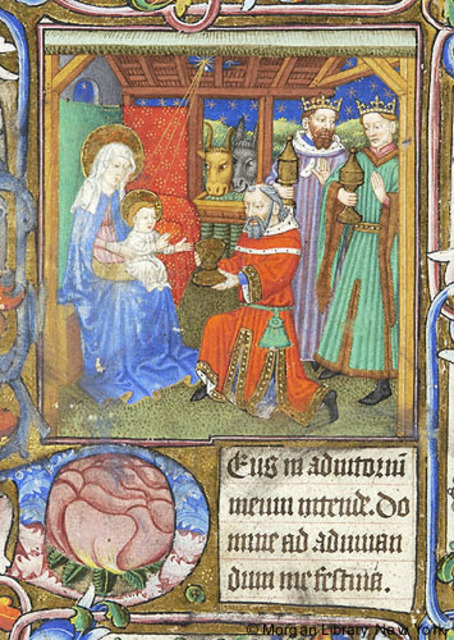 DEus in adiutoriū
meum intende. Do
mine ad adiuuan
dum me festina.
© Morgan Library, New York